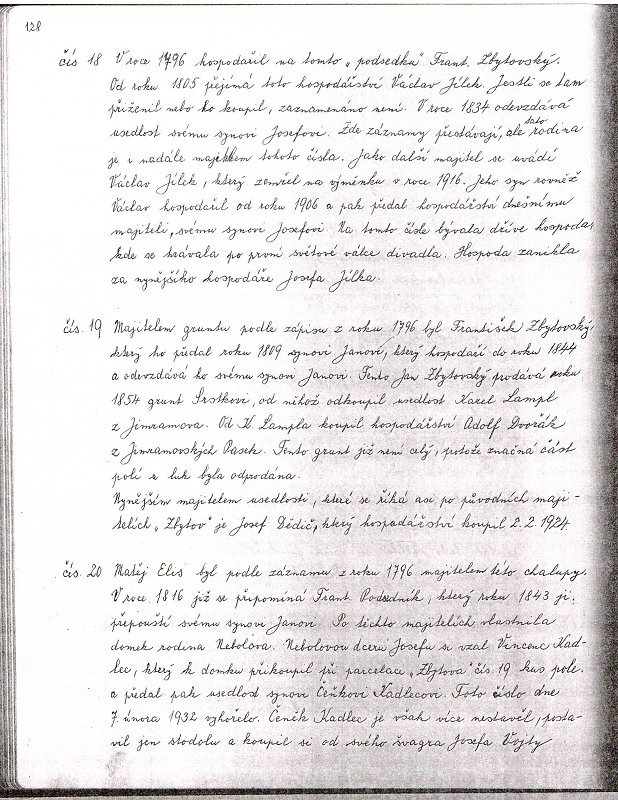 128
čís 18 V roce 1796 hospodařil na tomto „podsedku" Frant. Zbytovský.
Od roku 1805 přejímá toto hospodářství Václav Jílek. Jestli se tam
přiženil nebo ho koupil, zaznamenáno není. V roce 1834 odevzdává
usedlost svému synovi Josefovi. Zde záznamy přestávají, ale tato rodina
je i nadále majetkem tohoto čísla. Jako další majitel se uvádí
Václav Jílek, který zemřel na výměnku v roce 1916. Jeho syn rovněž
Václav hospodařil od roku 1906 a pak předal hospodářství dnešnímu
majiteli, svému synovi Josefovi. Na tomto čísle bývala dříve hospoda,
kde se hrávala po první světové válce divadla. Hospoda zanikla
za nynějšího hospodáře Josefa Jílka.
čís. 19 Majitelem gruntu podle zápisu z roku 1796 byl František Zbytovský,
který ho předal roku 1809 synovi Janovi, který hospodaří do roku 1844
a odevzdává ho svému synovi Janovi. Tento Jan Zbytovský prodává roku
1854 grunt Srstkovi, od něhož odkoupil usedlost Karel Lampl
z Jimramova. Od K. Lampla koupil hospodářství Adolf Dvořák
z Jimramovských Pasek. Tento grunt již není celý, protože značná část
polí a luk byla odprodána.
Nynějším majitelem usedlosti, které se říká asi po původních maji-
telích „Zbytov" je Josef Dědič, který hospodářství koupil 2.2.1924.
čís. 20 Matěj Elis byl podle záznamu z roku 1796 majitelem této chalupy.
V roce 1816 již se připomíná Frant Podsedník, který roku 1843 ji
přepouští svému synovi Janovi. Po těchto majitelích vlastnila
domek rodina Nebolova. Nebolovou dceru Josefu si vzal Vincenc Kad-
lec, který k domku přikoupil při parcelace „Zbytova" čís. 19 kus pole.
a předal pak usedlost synovi Čeňkovi Kadlecovi. Toto číslo dne
7. února 1932 vyhořelo. Čeněk Kadlec je však více nestavěl, posta-
vil jen stodolu a koupil si od svého švagra Josefa Vojty